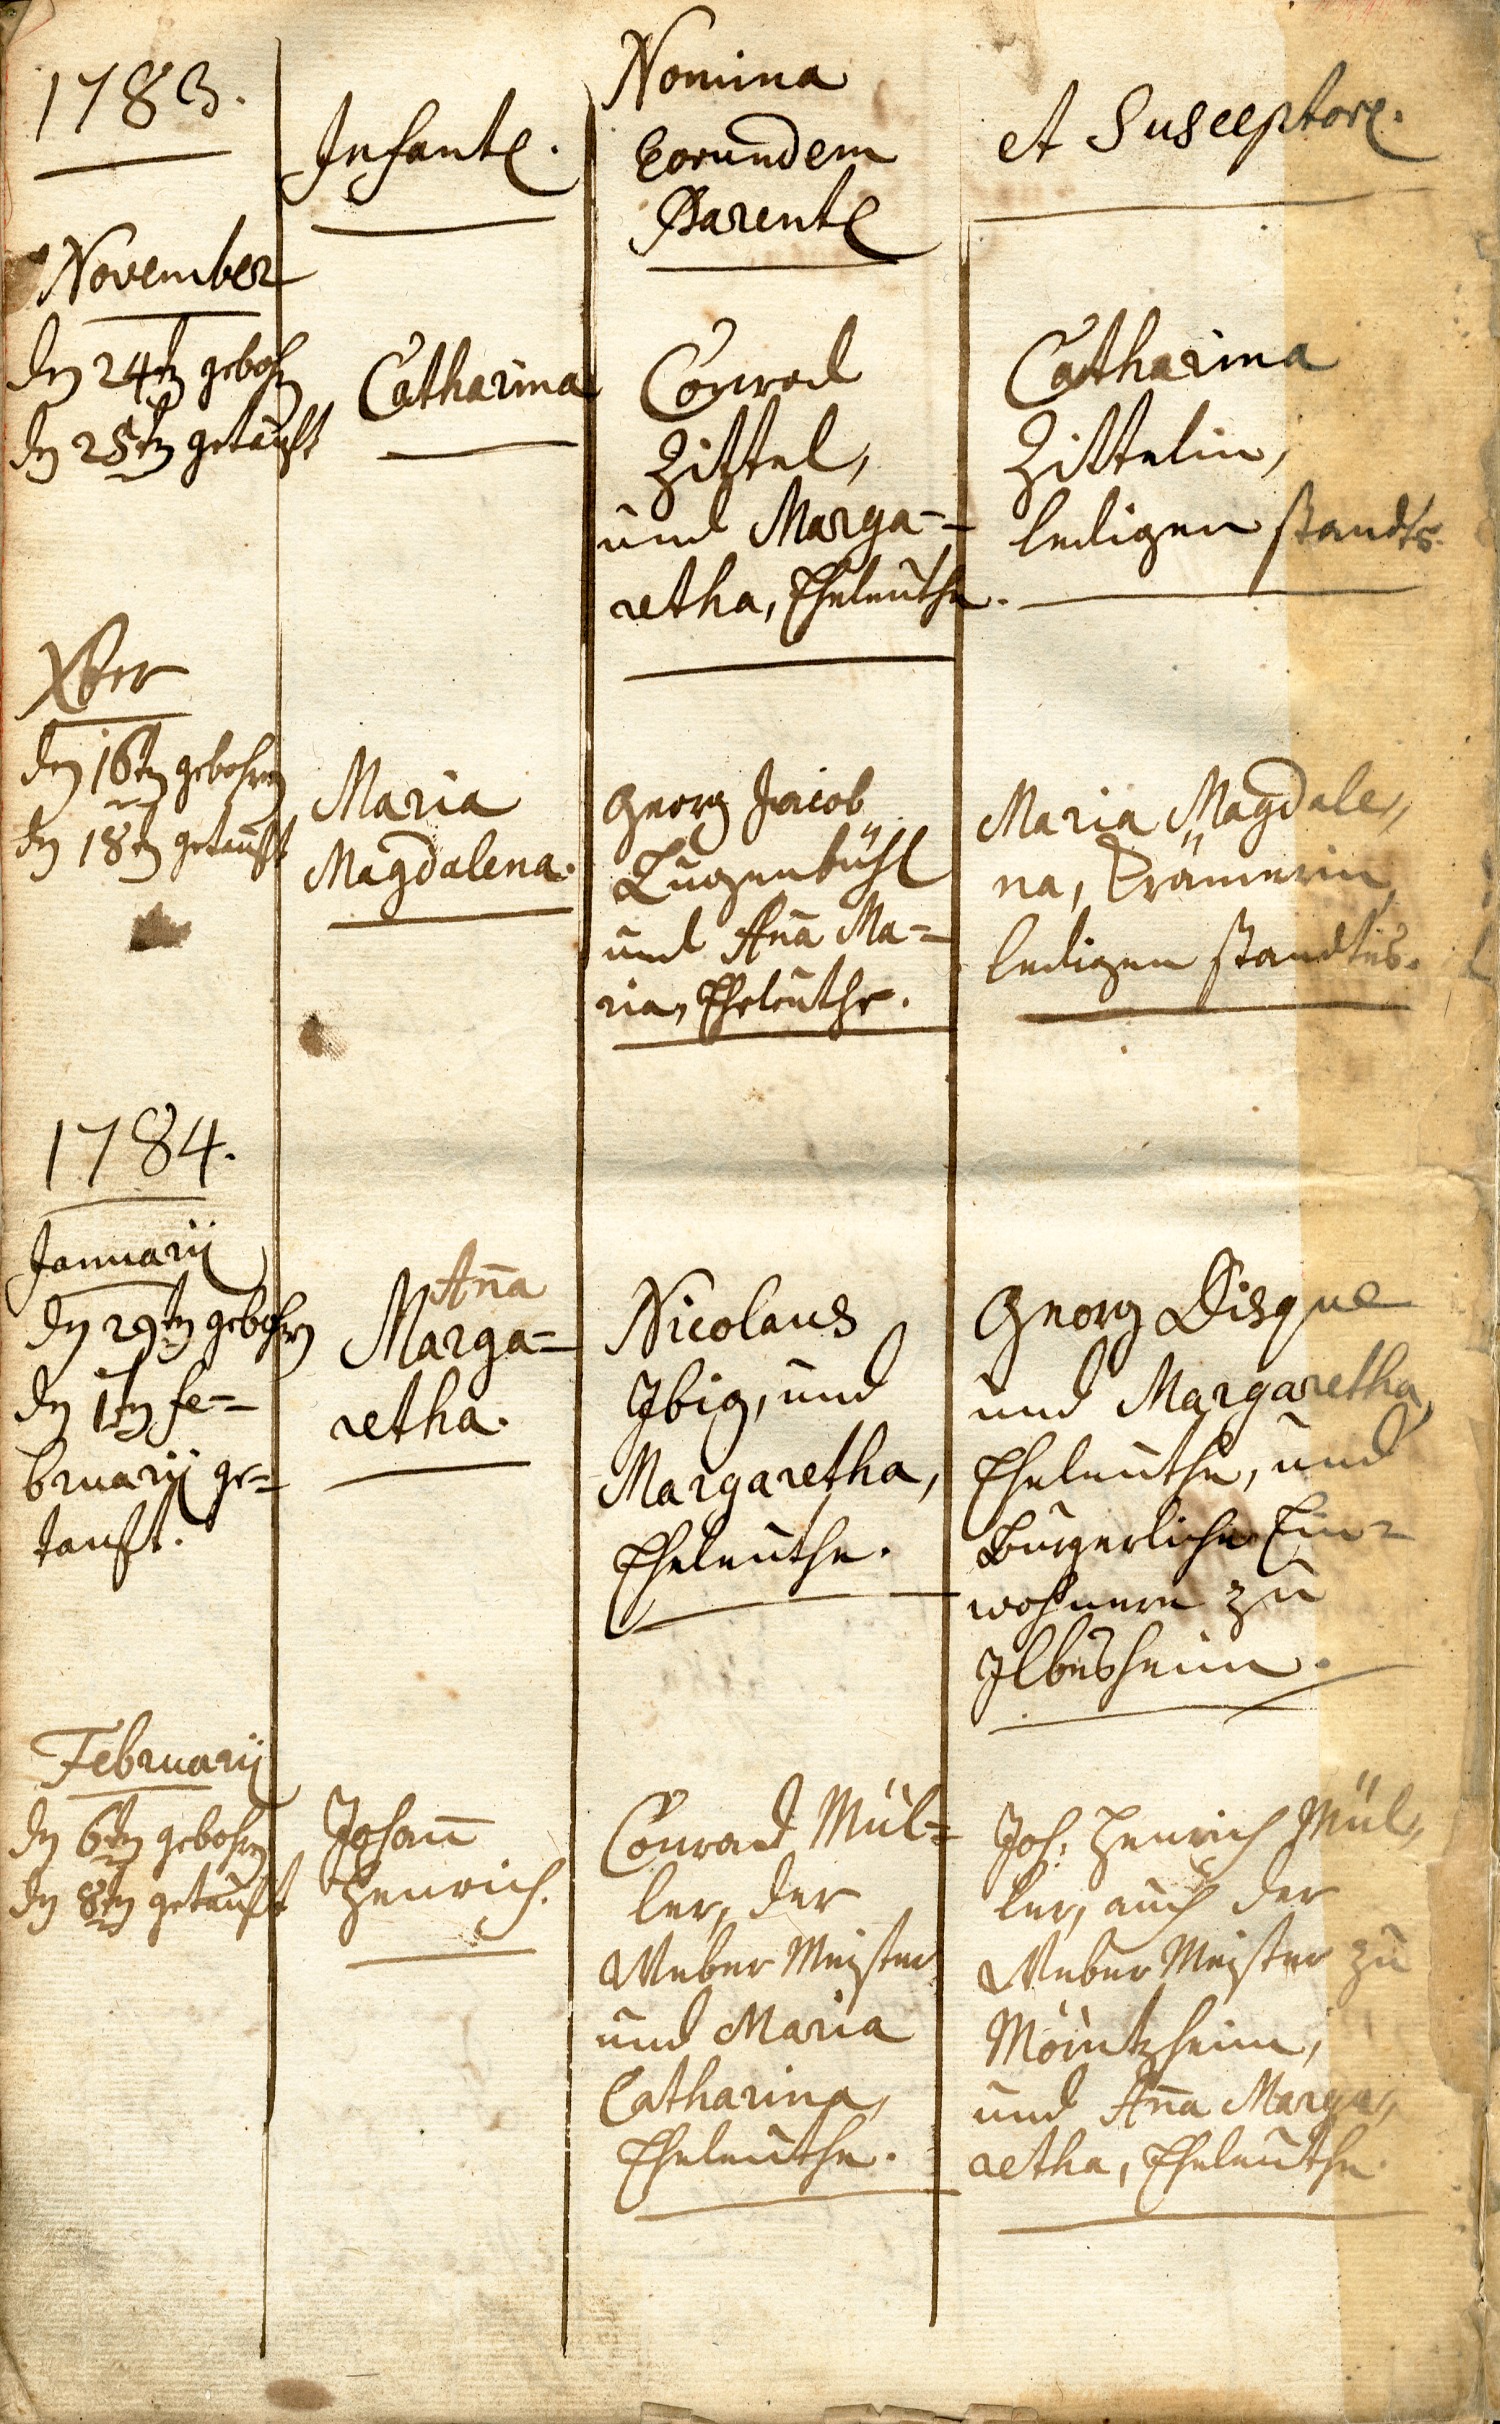 1783.
Infantes.
Nomina
Eorundem
Parentes
et Susceptores.
November
den 24ten gebohren
den 25ten getaufft
Catharina
Conrad
Zittel,
und Marga-
retha, Eheleuthe.
Catharina
Zittelin,
ledigen standts.
Xber
den 16ten gebohren
den 18ten getaufft
Maria
Magdalena.
Georg Jacob
Lugenbühl
und Aña Ma-
ria, Eheleuthe.
Maria Magdale,,
na, Krämerin,
ledigen standtes.
1784.
Januarii
den 29ten gebohren
den 1ten fe-
bruarii ge-
tauft.
Aña
Marga-
retha.
Nicolaus
Ibig, und
Margaretha,
Eheleuthe.
Georg Disque
und Margaretha,
Eheleuthe, und
Burgerliche Ein-
wohnere zu
Ilbesheim.
Februarii
den 6ten gebohren
den 8ten getaufft
Johan̄
Henrich.
Conrad Mül-
ler, der
Weber Meister
und Maria
Catharina,
Eheleuthe.
Joh: Henrich Mül,,
ler, auch der
Weber Meister zu
Möintzheim,
und Aña Marga,,
retha, Eheleuthe.